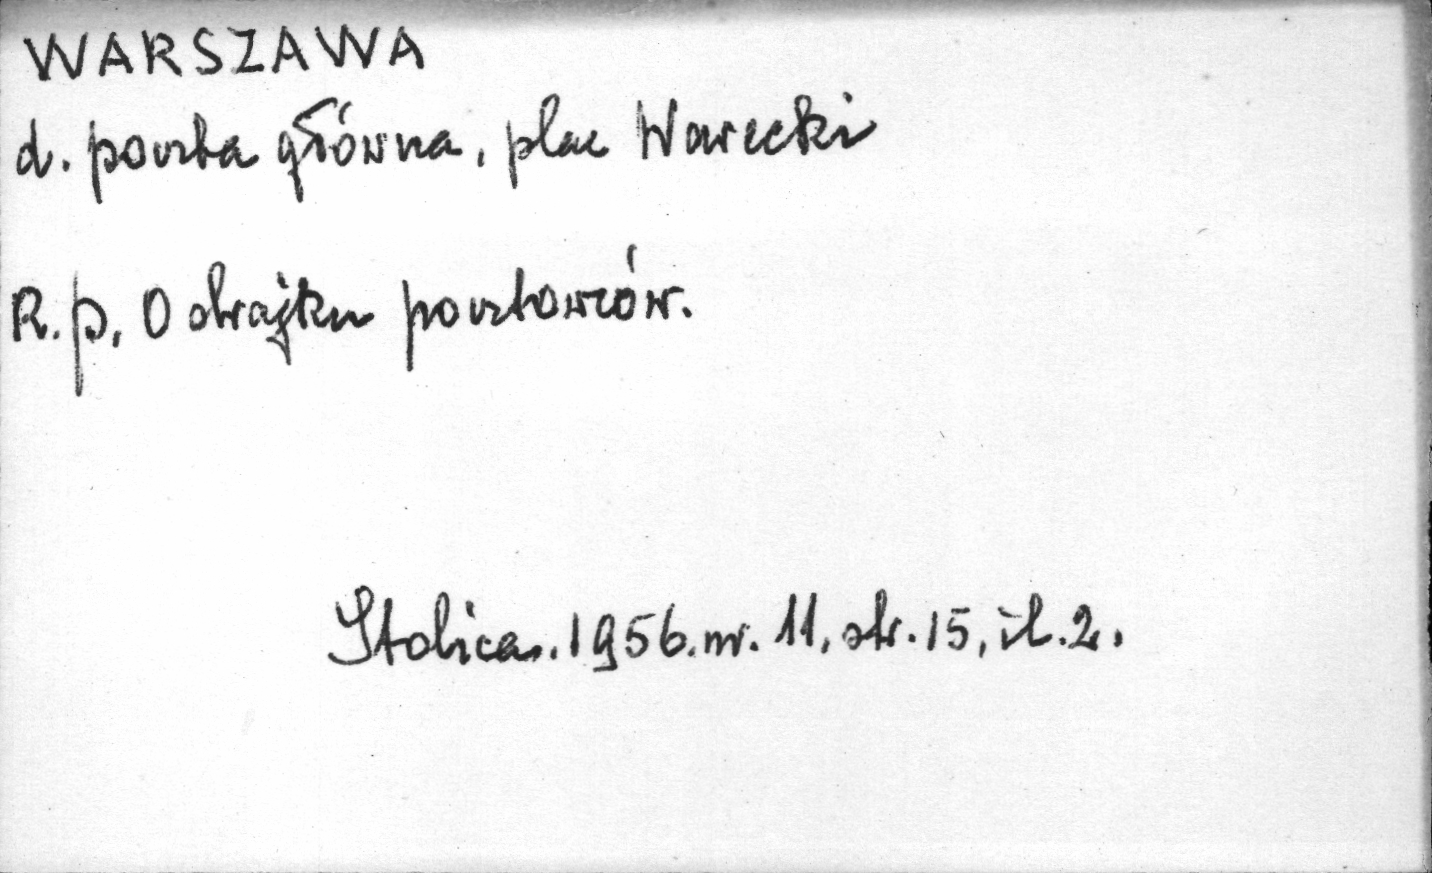 WARSZAWA
d. poczta główna, plac Warecki
R.p. O strajku pocztowców.
Stolica. 1956. nr. 11, str. 15, il. 2.